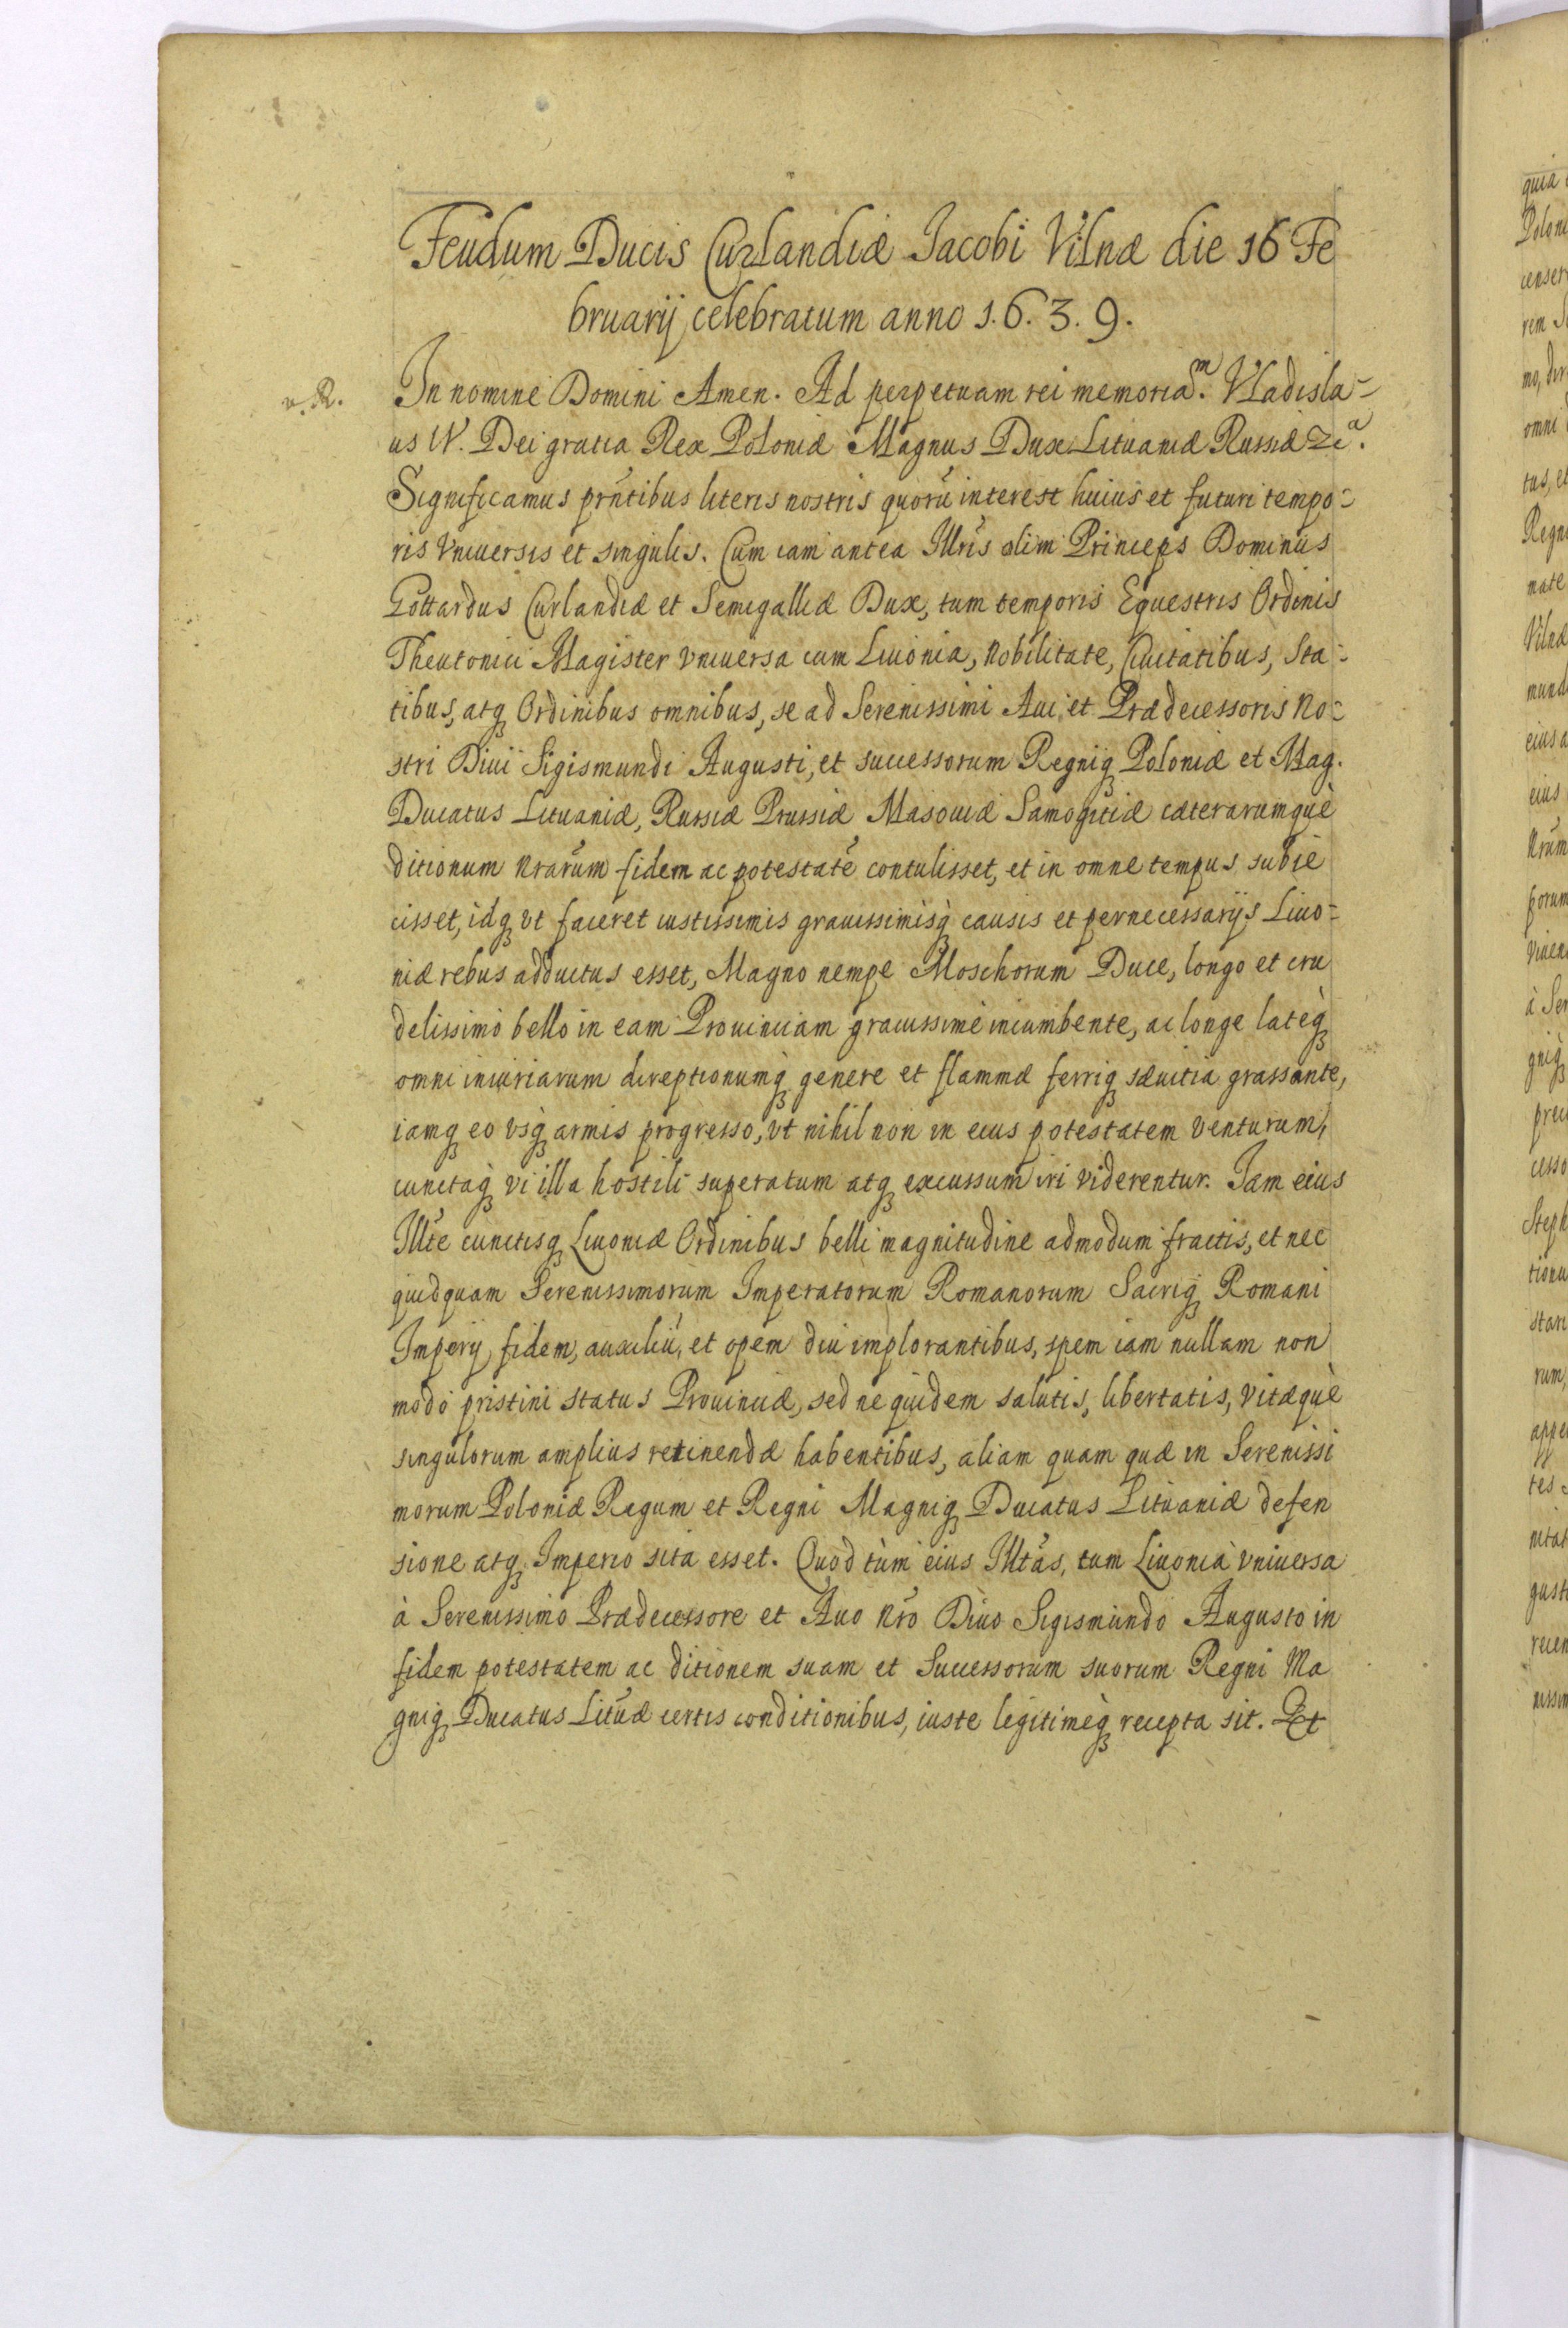 Feudum Ducis Curlandiæ Jacobi Vilnæ die 16 Fe
bruarij celebratum anno 1.6.3.9.
v. R.
In nomine Domini Amen. Ad perpetuam rei memoriam. Vladisla=
us IV. Dei gratia Rex Poloniæ Magnus Dux Lituaniæ Russiæ
Significamus pr̃ntibus literis nostris quorũ interest huius et futuri tempo=
ris Vniuersis et singulis. Cum iam antea Illr̃is olim Princeps Dominus
Gottardus Curlandiæ et Semigalliæ Dux, tum temporis Equestris Ordinis
Theutonici Magister vniuersa cum Liuonia, Nobilitate, Ciuitatibus, Sta=
tibus, atq Ordinibus omnibus, se ad Serenissimi Aui et Prædecessoris No=
stri Diui Sigismundi Augusti, et successorum Regniq Poloniæ et Mag.
Ducatus Lituaniæ, Russiæ Prussiæ Masouiæ Samogitiæ cæterarumquè
ditionum Nrãrum fidem ac potestatẽ contulisset, et in omne tempus subie
cisset, idq vt faceret iustissimis grauissimisq̀ causis et pernecessarijs Liuo=
niæ rebus adductus esset, Magno nempe Moschorum Duce, longo et cru
delissimo bello in eam Prouinciam grauissimè incumbente, ac longe latèq
omni iniuriarum direptionumq̀ genere et flammæ ferriq sæuitia grassante,
iamq eo vsq̀ armis progresso, vt nihil non in eius potestatem venturum,
cunctaq̀ vi illa hostili superatum atq excussum iri viderentur. Iam eius
Illt̃e cunctisq Liuoniæ Ordinibus belli magnitudine admodum fractis, et nec
quidquam Serenissimorum Imperatorum Romanorum Sacriq Romani
Imperij fidem, auxiliũ, et opem diu implorantibus, spem iam nullam non
modo pristini status Prouinciæ, sed ne quidem salutis, libertatis, vitæquè
singulorum amplius retinendæ habentibus, aliam quam quæ in Serenissi
morum Poloniæ Regum et Regni Magniq Ducatus Lituaniæ defen
sione atq Imperio sita esset. Quod tùm eius Illtãs, tum Liuonia vniuersa
à Serenissimo Prædecessore et Auo Nrõ Diuo Sigismundo Augusto in
fidem potestatem ac ditionem suam et Successorum suorum Regni Ma
gniq Ducatus Litũæ certis conditionibus, iuste legitimèq recepta sit. Et